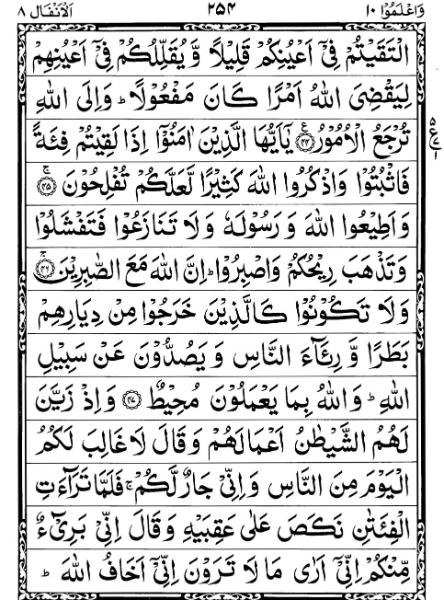 وَاعْلَمُوْۤا ١٠ ٢٥٤ اَلْاَنْفَال ٨
الْتَقَيْتُمْ فِیْۤ اَعْيُنِكُمْ قَلِيْلًا وَّ يُقَلِّلُكُمْ فِیْۤ اَعْيُنِهِمْ
لِيَقْضِیَ اللّٰهُ اَمْرًا كَانَ مَفْعُوْلًا ؕ وَاِلَی اللّٰهِ
تُرْجَعُ الْاُمُوْرُ ﴿٤٤﴾ يٰۤاَيُّهَا الَّذِيْنَ اٰمَنُوْۤا اِذَا لَقِيْتُمْ فِئَةً
فَاثْبُتُوْا وَاذْكُرُوا اللّٰهَ كَثِيْرًا لَّعَلَّكُمْ تُفْلِحُوْنَ ﴿٤٥﴾
وَ اَطِيْعُوا اللّٰهَ وَ رَسُوْلَهٗ وَ لَا تَنَازَعُوْا فَتَفْشَلُوْا
وَ تَذْهَبَ رِيْحُكُمْ وَ اصْبِرُوْا ؕ اِنَّ اللّٰهَ مَعَ الصّٰبِرِيْنَ ﴿٤٦﴾
وَ لَا تَكُوْنُوْا كَالَّذِيْنَ خَرَجُوْا مِنْ دِيَارِهِمْ
بَطَرًا وَّ رِئَآءَ النَّاسِ وَ يَصُدُّوْنَ عَنْ سَبِيْلِ
اللّٰهِ ؕ وَاللّٰهُ بِمَا يَعْمَلُوْنَ مُحِيْطٌ ﴿٤٧﴾ وَ اِذْ زَيَّنَ
لَهُمُ الشَّيْطٰنُ اَعْمَالَهُمْ وَ قَالَ لَا غَالِبَ لَكُمُ
الْيَوْمَ مِنَ النَّاسِ وَ اِنِّیْ جَارٌ لَّكُمْ ۚ فَلَمَّا تَرَآءَتِ
الْفِئَتٰنِ نَكَصَ عَلٰی عَقِبَيْهِ وَ قَالَ اِنِّیْ بَرِیْٓءٌ
مِّنْكُمْ اِنِّیْۤ اَرٰی مَا لَا تَرَوْنَ اِنِّیْۤ اَخَافُ اللّٰهَ ؕ